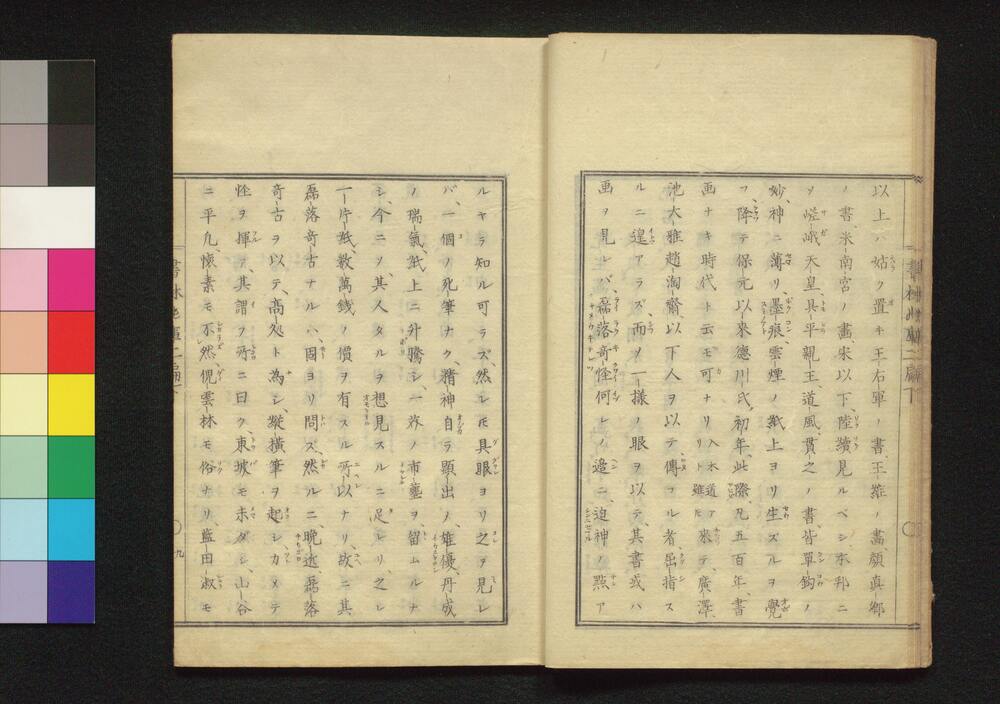 以上ハ姑ク置キ王右軍ノ書、王維ノ畵、顔真卿
ノ書、米南宮ノ畵、宋以下陸續見ルベシ本邦ニ
ソ嵯峨天皇具平親王、道風、貫之ノ書、皆單鈎ノ
妙、神ニ薄リ、墨痕雲煙ノ紙上ヨリ生ズルヲ覺
フ、降テ保元以来德川氏ノ初年、此際凡五百年、書
画ナキ時代ト云モ可ナリ入木道ノ來テ、廣澤、
リト雖ㇳモ
池大雅趙陶齋、以下人ヲ以テ傳フル者、屈指ス
ルニ遑アラズ、而ソ一様ノ眼ヲ以テ、其書或ハ
画ヲ見レバ、磊落奇怪何レノ邉ニ、迫神ノ點ア
ルヤヲ知ル可ラズ、然レㇳモ具眼ヨリ之ヲ見レ
バ、一個ノ死筆ナク、精神自ラ顕出ノ、雄優、丹成
ノ瑞氣、紙上ニ升騰シ、一疵ノ市塵ヲ留ムルナ
シ、今ニソ其人タルヲ想見スルニ足レリ、之レ
一片紙、数萬錢ノ價ヲ有スル所以ナリ、故ニ其
磊落奇古ナルハ、固ヨリ問ス、然ルニ晩近磊落
奇古ヲ以テ、高処ト為シ、縱横筆ヲ起シ、カメテ
怪ヲ揮フ、其謂フ所ニ曰ク、東坡モ未ダシ、山谷
ニ平凡、懐素モ不然、倪雲林モ俗ナリ、藍田淑モ
九